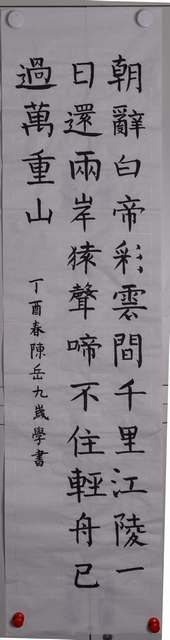 朝辭白帝彩雲間千里江陵一
日還兩岸猿聲啼不住輕舟已
過萬重山
丁酉春陳岳九歲學書